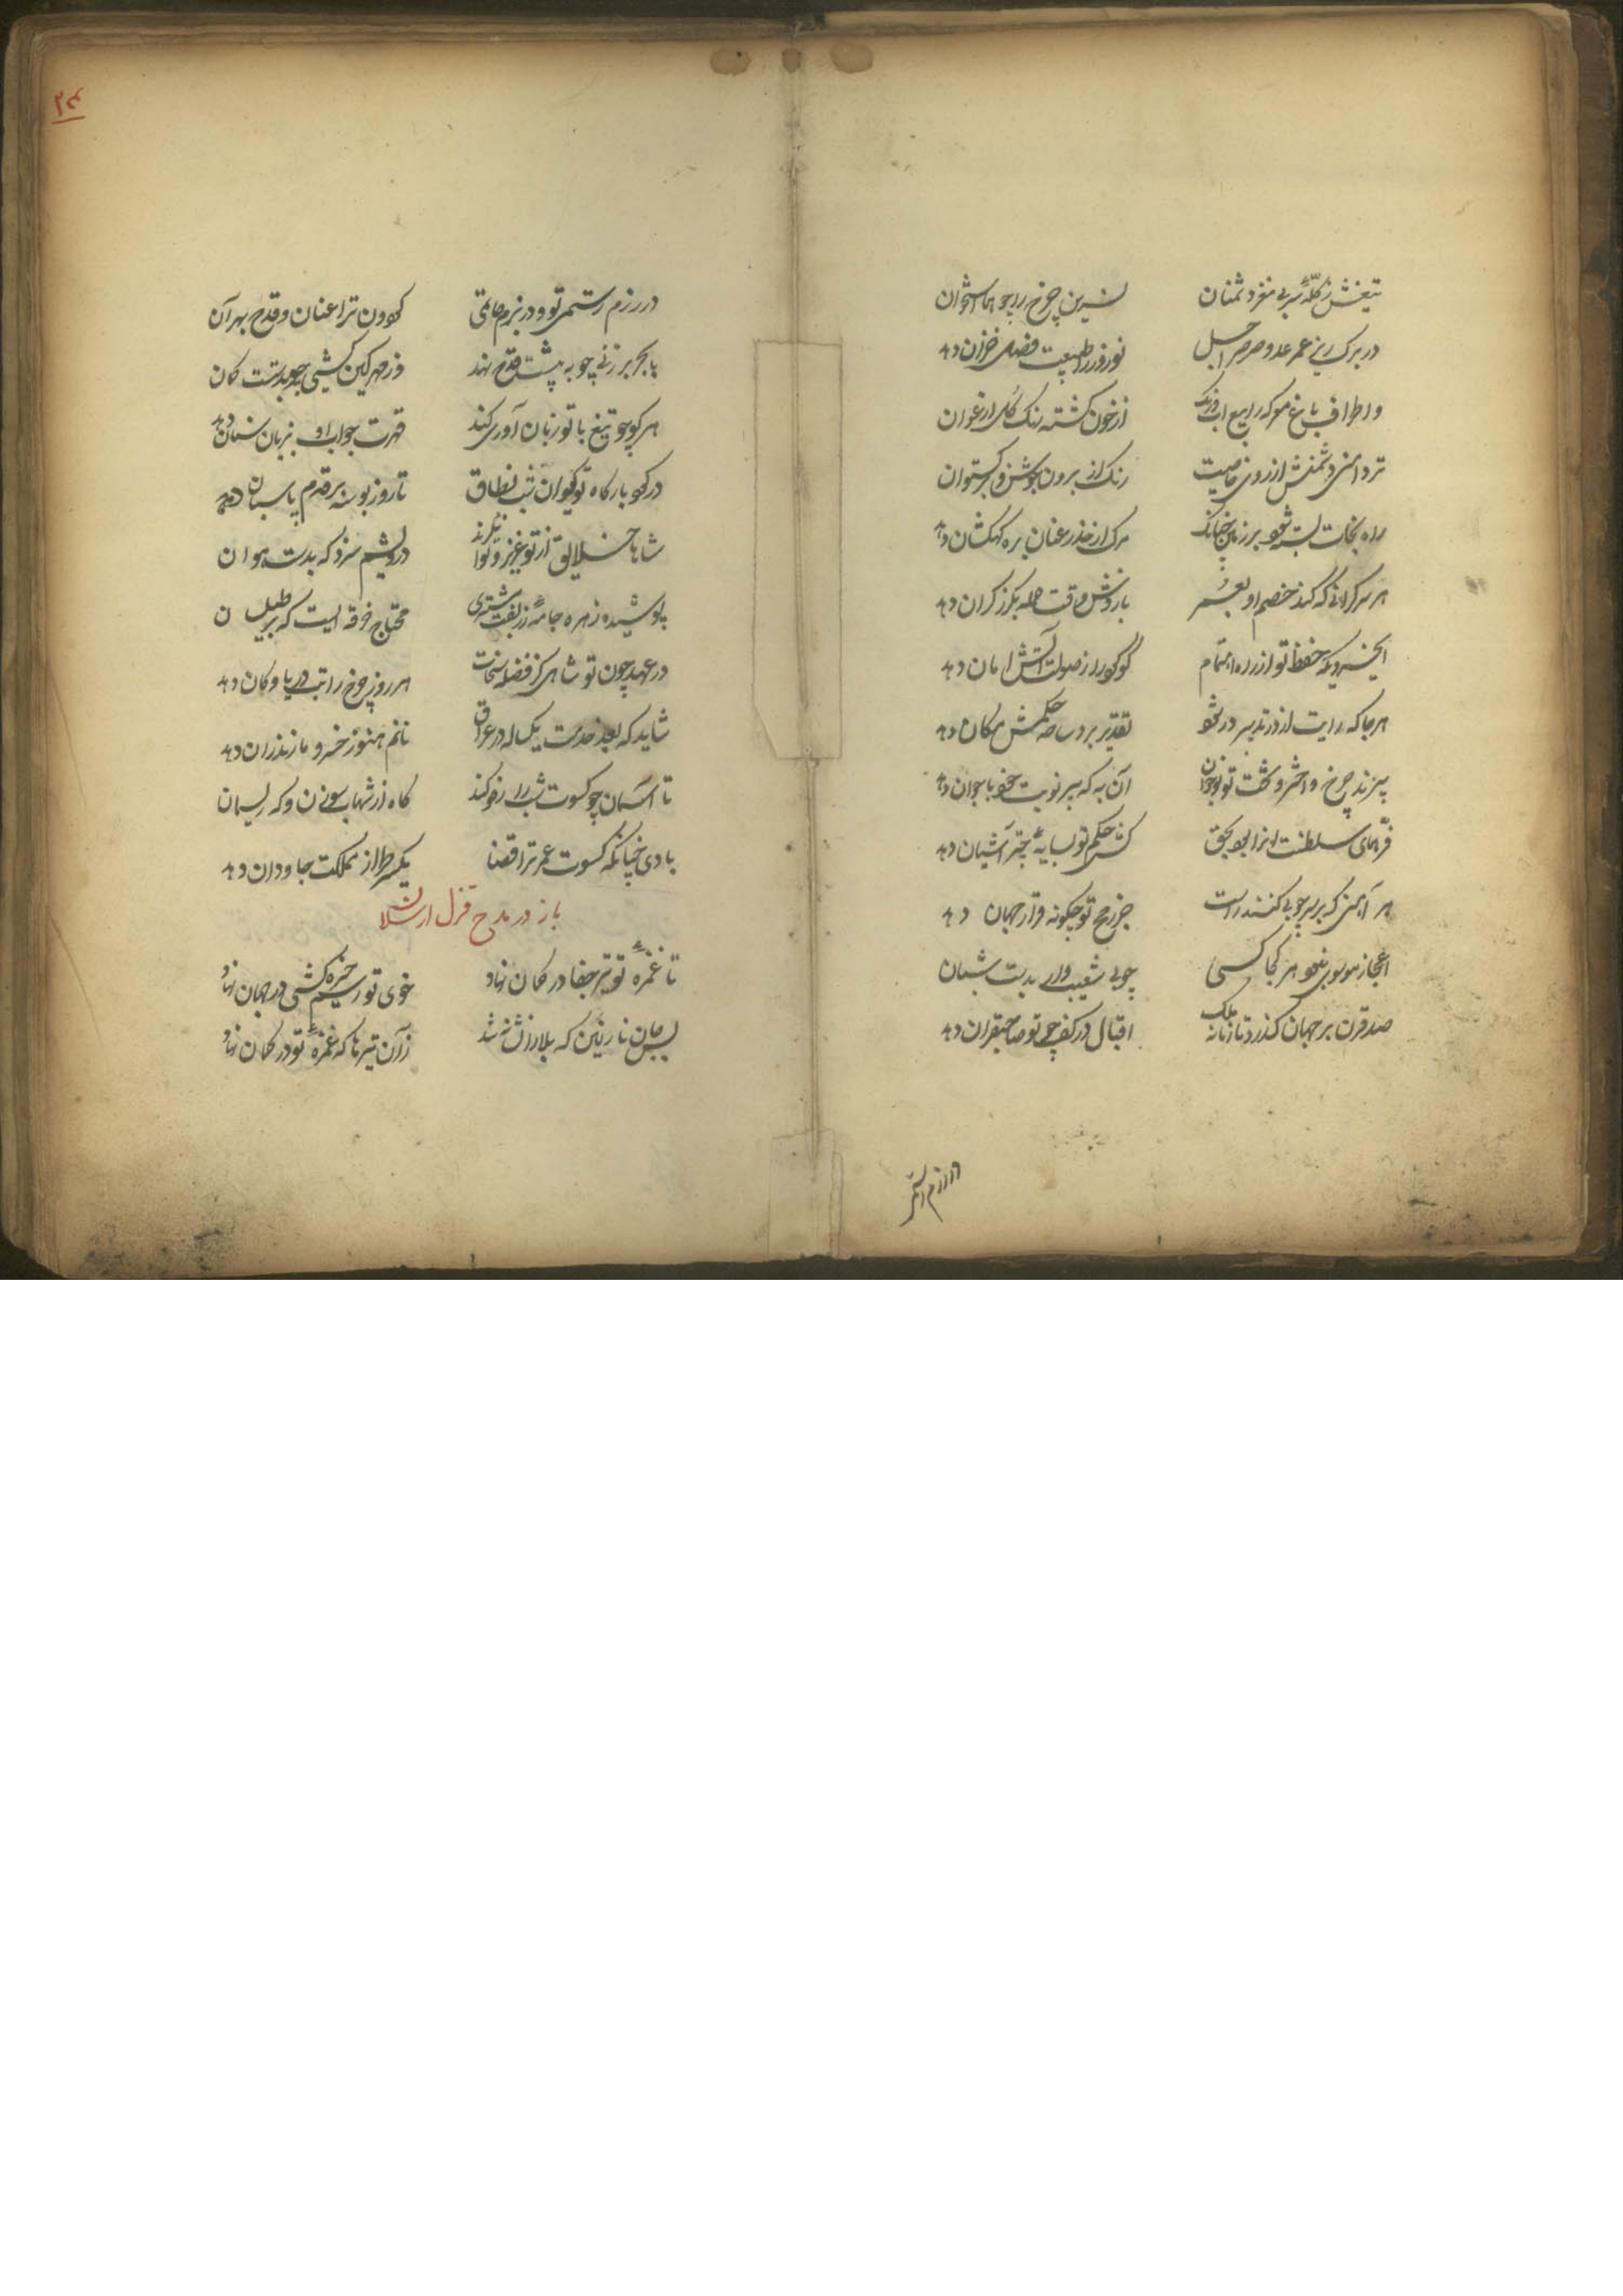 تیغش ز کلهٔ سر بی مغز دشمنان نسرین چرخ را چو هما استخوان
در برک ریز عمر عدو صرصر اجل نوروز را طبیعت فصل خزان دهد
و اطراف باغ معرکه را تیغ از خون کشته رنک کل ارغوان
تر دامنی دشمنش از روی خاصیت رنک از برون جوشن و برکستوان
راه نجات بسته شود بر زمین چنانک مرک از حذر عنان بره کهکشان دهد
هر سر کرانی که کند خصم او بعمر بازوش وقت حمله بکرز کران دهد
ای خسرویکه حفظ تو از راه اهتمام کوکرد را ز صولت آتش امان دهد
هر جا که رایت از در تدبیر در شود تقدیر بر وساده حکمش مکان دهد
پیرند چرخ و اختر و بخت تو نوجوان آن به که پیر نوبت خود با جوان دهد
فر همای سلطنت آنرا بود بحق کش حکم تو بسایهٔ چتر آشیان دهد
هر آهنی که بر سر چوبی کنند راست جز رمح تو چکونه قرار جهان دهد
اعجاز موسوی نبود هر کجا کسی چوب شعیب را بدست شبان
صد قرن بر جهان کذرد تا زمام ملک اقبال در کف چو تو صاحبقران دهد
در رزم رستم
۲۴
در رزم رستمی تو و در بزم حاتمی کردون ترا عنان و قدح بهر آن
پا بحر بر زنی چو به پیشت قدح نهد وز مهر کین کشی چو بدستت کمان
هر کو چو تیغ با تو زبان آوری کند قهرت جواب او بزبان سنان دهد
در کوی بارکاه تو کیوان شب نطاق تا روز بوسه بر قدم پاسبان دهد
شاها خلایق از تو عزیز و توانکرند درویشم سزد که بدست هوان
پوشیده زهره جامهٔ زربفت مشتری محتاج خرقه ایست که بر طیلسان
در عهد چون تو شاهی کز فضلهٔ سخات هر روز چرخ راتب دریا و کان دهد
شاید که بعد خدمت یکساله در عراق نانم هنوز خسرو مازندران دهد
تا آسمان چو کسوت شب را رفو کند کاه از شهاب سوزن و که ریسمان
بادی چنانکه کسوت عمر ترا قضا یکسر طراز مملکت جاودان دهد
باز در مدح قزل ارسلان
تا غمزهٔ تو تیر جفا در کمان نهاد خوی تو رسم خیره کشی در جهان نهاد
بس جان نازنین که بلا را نشانه شد زان تیرها که غمزهٔ تو در کمان نهاد